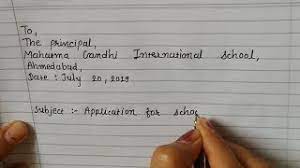 To,
The principal,
Mahatma Gandhi International School,
Ahmedabad,
Date : July 20, 2019
Subject :- Application for scho